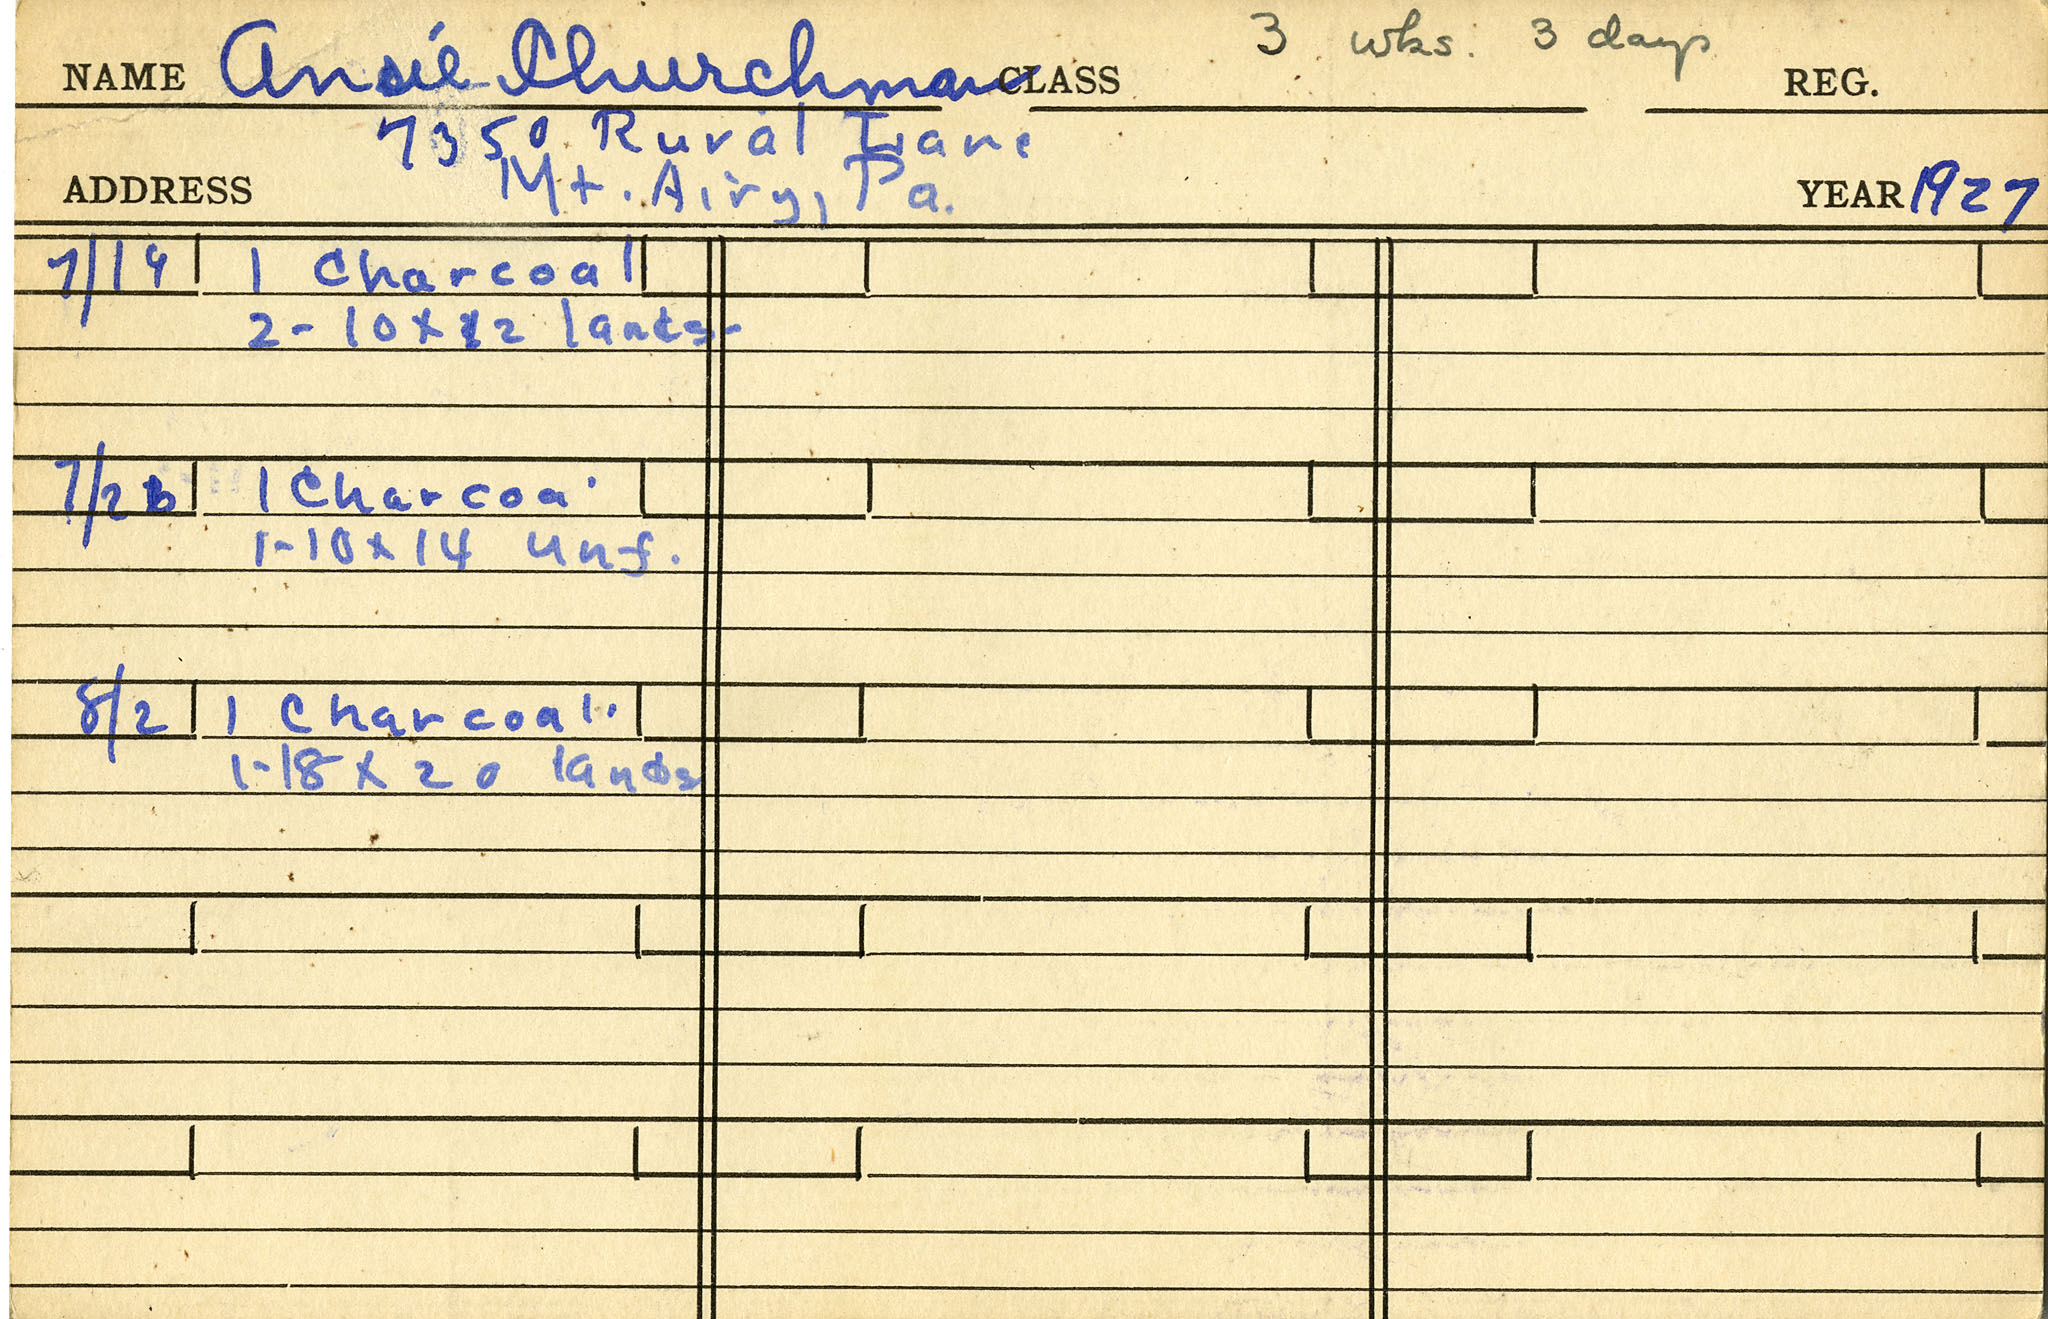 3 wks. 3 days
NAME Ansie Churchman CLASS REG.
7350 Rural Lane
ADDRESS Mt. Airy, Pa. YEAR 1927
7/19 1 Charcoal
2-10x12 lands-
7/26 1 Charcoal
1-10x14 unf.
8/2 1 Charcoal.
1-18x20 lands